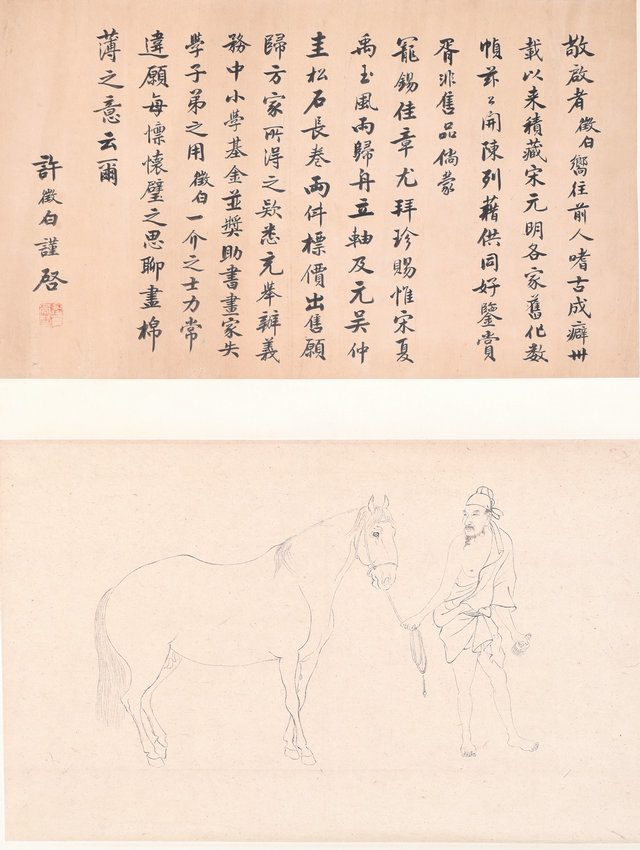 敬啟者徵白嚮往前人嗜古成癖卅
載以来積藏宋元明各家舊作数
幀茲公開陳列藉供同好鑒賞
胥非售品倘蒙
寵錫佳章尤拜珍賜惟宋夏
禹玉風雨歸舟立軸及元吴仲
圭松石長卷两件標價出售願
歸方家所得之欵悉充舉辦義
務中小學基金並獎助書畫家失
學子弟之用徵白一介之士力常
違願每懍懷璧之思聊盡棉
薄之意云爾
許徵白謹啓